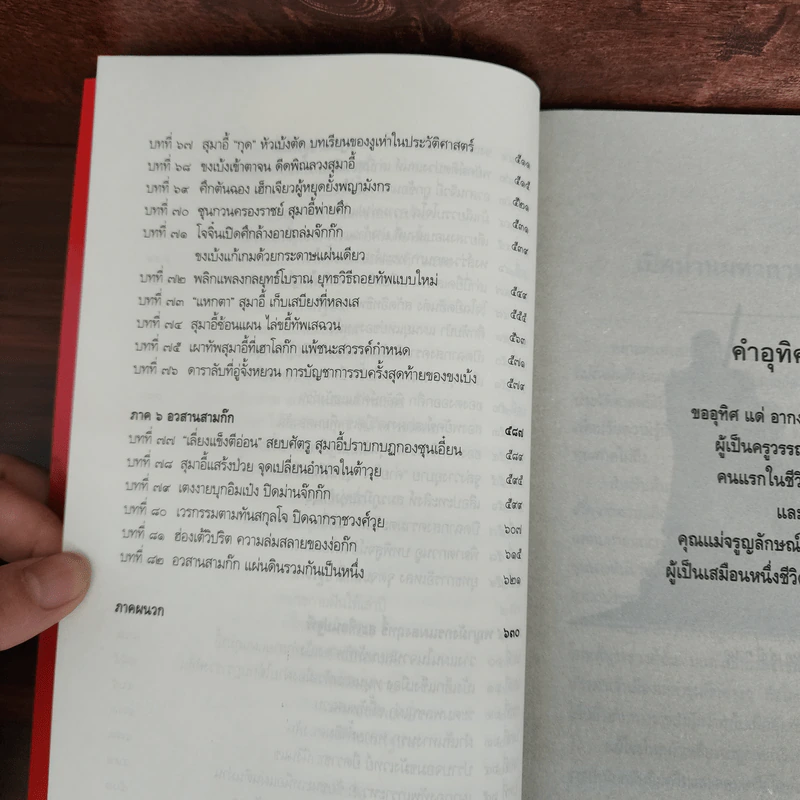 บทที่ ๖๗ สุมาอี้ "กุด" หัวเบ้งตัด บทเรียนของงูเห่าในประวัติศาสตร์ ๕๑๑
บทที่ ๖๘ ขงเบ้งเข้าตาจน ดีดพิณลวงสุมาอี้ ๕๑๕
บทที่ ๖๙ ศึกตันฉอง เฮ็กเจียวผู้หยุดยั้งพญามังกร ๕๒๑
บทที่ ๗๐ ซุนกวนครองราชย์ สุมาอี้พ่ายศึก ๕๓๑
บทที่ ๗๑ โจจิ๋นเปิดศึกล้างอายถล่มจ๊กก๊ก ๕๓๙
ขงเบ้งแก้เกมด้วยกระดาษแผ่นเดียว
บทที่ ๗๒ พลิกแพลงกลยุทธ์โบราณ ยุทธวิธีถอยทัพแบบใหม่ ๕๔๙
บทที่ ๗๓ "แหกตา" สุมาอี้ เก็บเสบียงที่หลงเส ๕๕๕
บทที่ ๗๔ สุมาอี้ซ้อนแผน ไล่ขยี้ทัพเสฉวน ๕๖๓
บทที่ ๗๕ เผาทัพสุมาอี้ที่เฮาโลก๊ก แพ้ชนะสวรรค์กำหนด ๕๗๑
บทที่ ๗๖ ดาราลับที่อู่จั้งหยวน การบัญชาการรบครั้งสุดท้ายของขงเบ้ง ๕๗๙
ภาค ๖ อวสานสามก๊ก ๕๘๗
บทที่ ๗๗ "เลี่ยงแข็งตีอ่อน" สยบศัตรู สุมาอี้ปราบกบฏกองซุนเอี๋ยน ๕๘๙
บทที่ ๗๘ สุมาอี้แสร้งป่วย จุดเปลี่ยนอำนาจในต้าวุย ๕๙๕
บทที่ ๗๙ เตงงายบุกอิมเป๋ง ปิดม่านจ๊กก๊ก ๕๙๙
บทที่ ๘๐ เวรกรรมตามทันสกุลโจ ปิดฉากราชวงศ์วุย ๖๐๗
บทที่ ๘๑ ฮ่องเต้วิปริต ความล่มสลายของง่อก๊ก ๖๑๕
บทที่ ๘๒ อวสานสามก๊ก แผ่นดินรวมกันเป็นหนึ่ง ๖๒๑
ภาคผนวก ๖๓๐
คำอุทิศ
ขออุทิศ แด่ อากง
ผู้เป็นครูวรรณ
คนแรกในชีวิ
และ
คุณแม่จรูญลักษณ์
ผู้เป็นเสมือนหนึ่งชีวิต